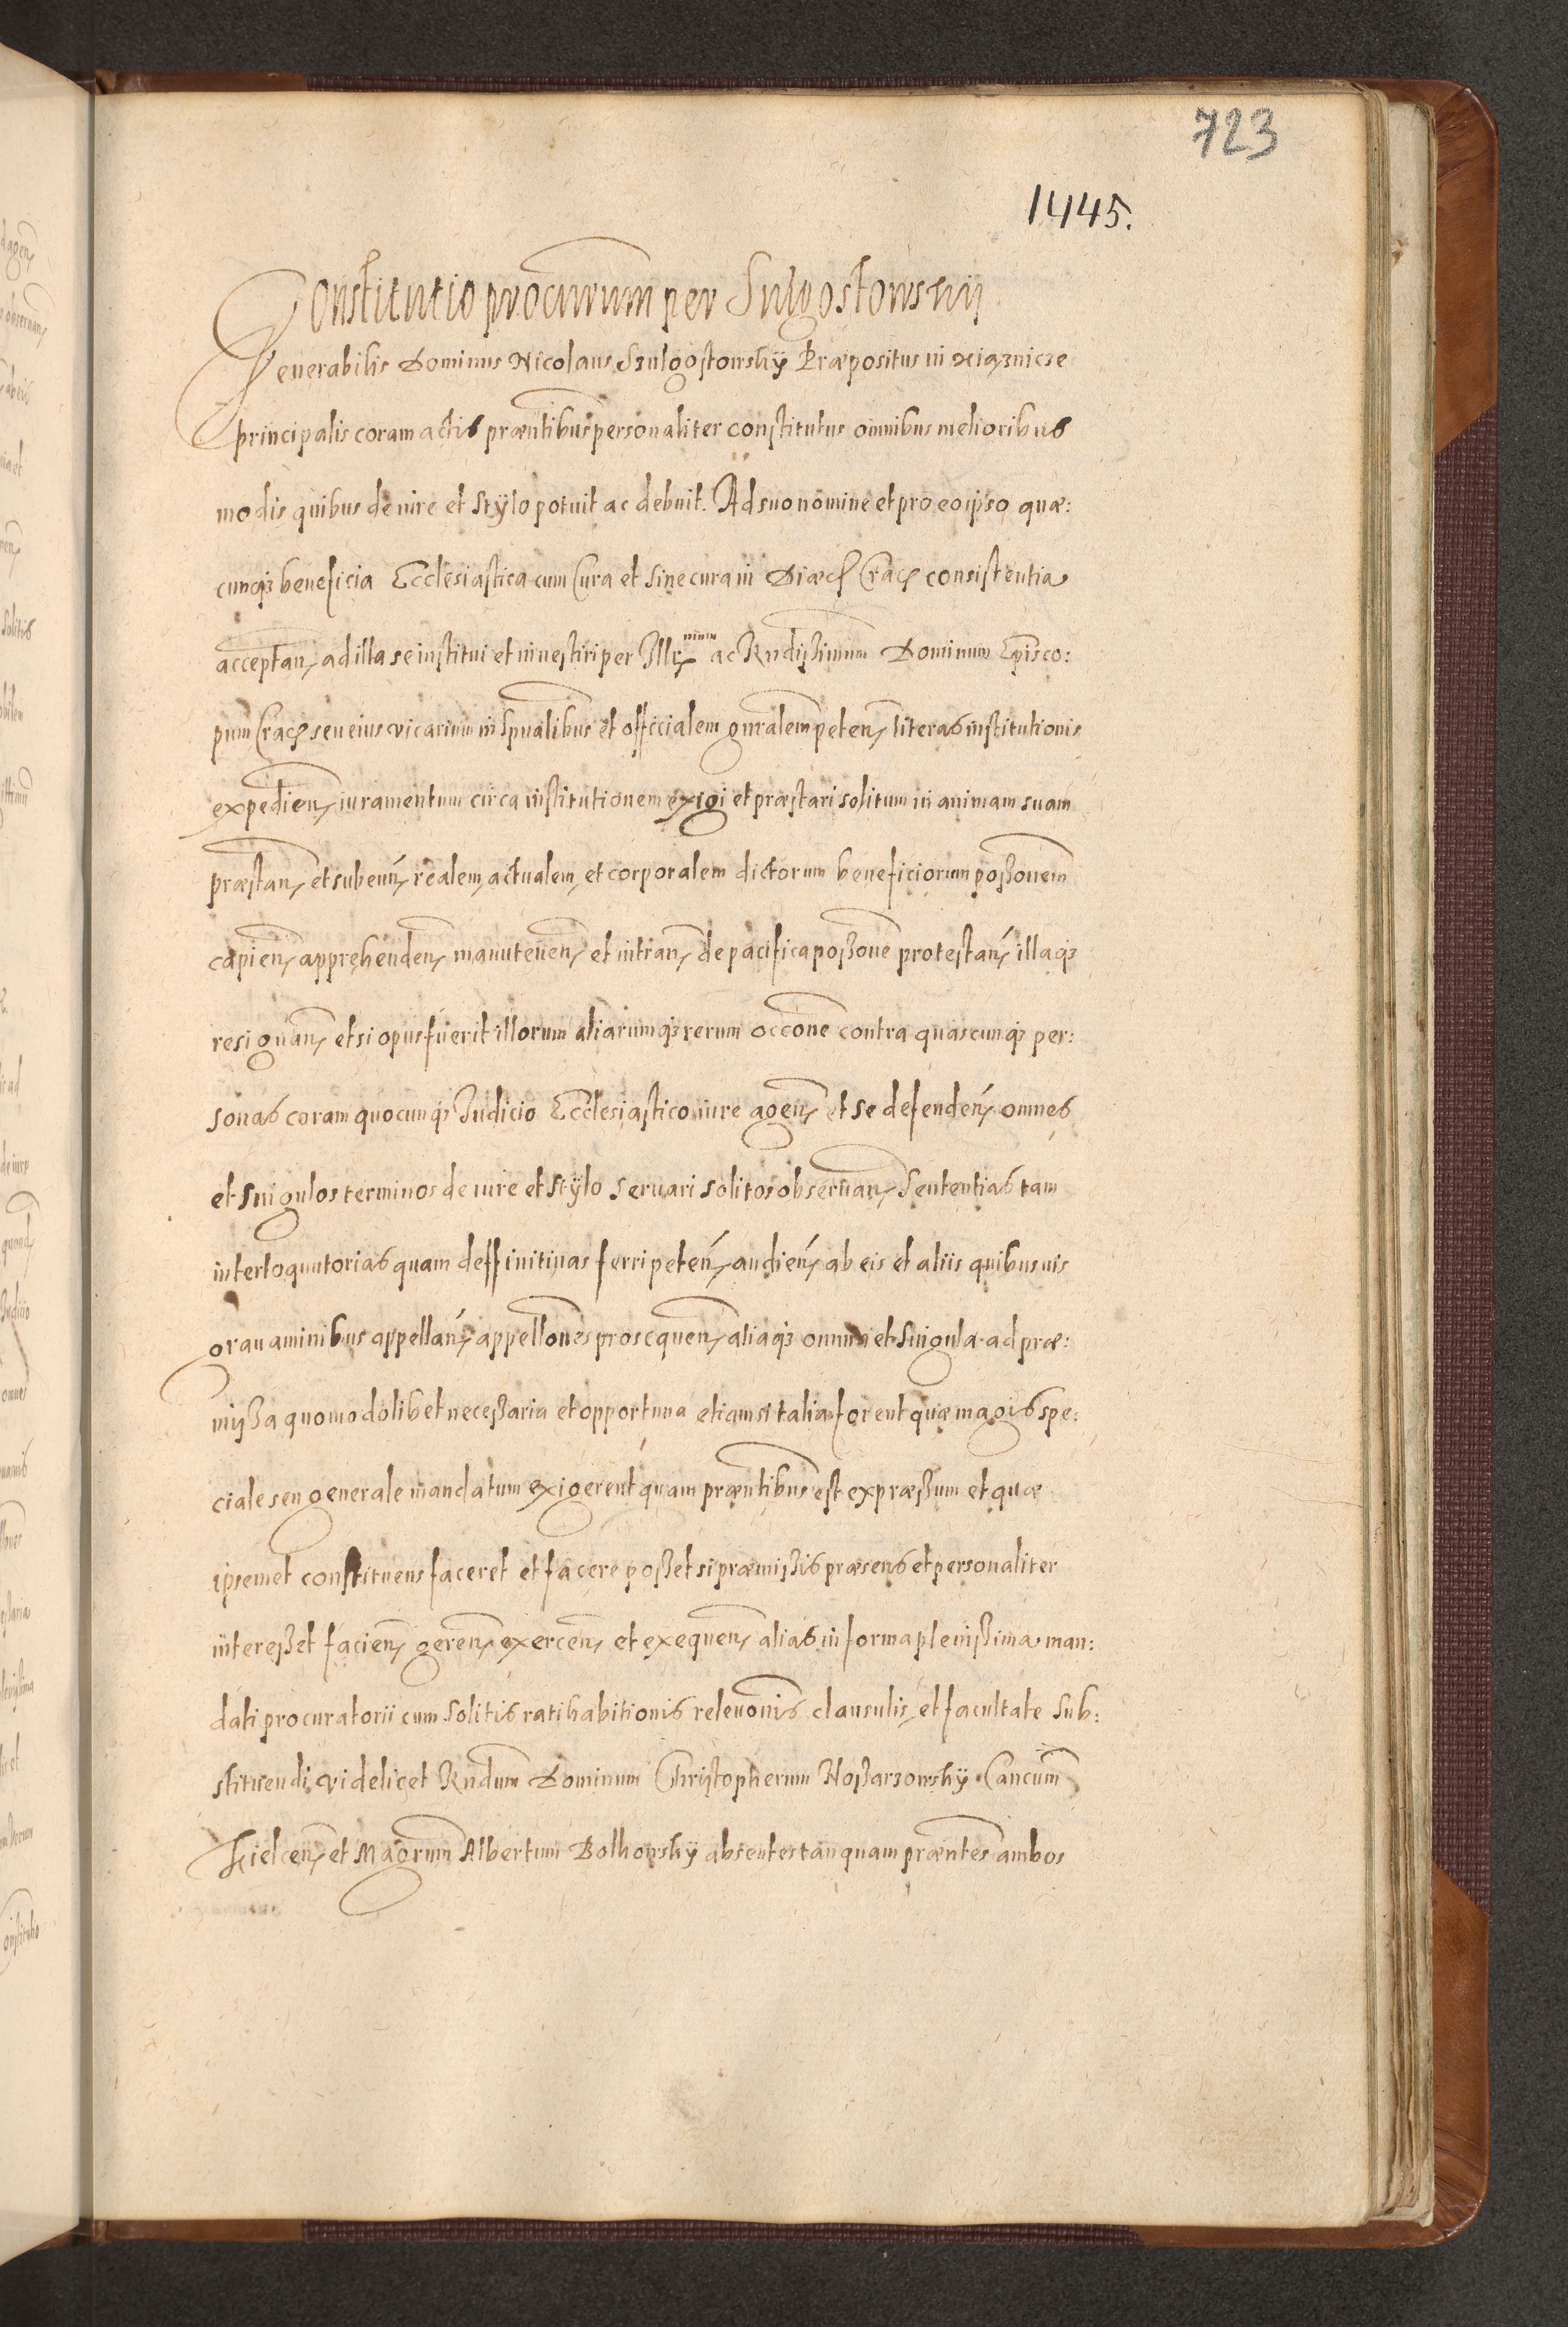 723
1445.
Constitutio procurum per Sulgostowskij
Venerabilis Dominus Nicolaus Szulgostowskÿ Præpositus in Xiąznicze
principalis coram actis præntibus personaliter constitutus omnibus melioribus
modis quibus de iure et stÿlo potuit ac debuit. Ad suo nomine et pro eo ipso quæ:
cunq3 beneficia Ecclesiastica cum Cura et sine cura in Diæc Crac consistentia
acceptan, ad illa se institui et inuestiri per Illr̃mum ac Rndissimum Dominum Episco:
pum Crac seu eius vicarium in Spnalibus et officialem gnralem peten, literas institutionis
expedien, iuramentum circa institutionem exigi et præstari solitum in animam suam
præstan, et subeun, realem, actualem, et corporalem dictorum beneficiorum poßonem
capien, apprehenden, manuteneñ, et intran, de pacifica poßone protestan, illaq3
resignan, et si opus fuerit illorum aliarumq3 rerum occone contra quascunq3 per:
sonas coram quocunq3 Iudicio Ecclesiastico iure agen, et se defenden, omnes
et singulos terminos de iure et stÿlo seruari solitos obseruan, Sententias tam
interloqutorias quam deffinitiuas ferri peten, audien, ab eis et aliis quibusuis
grauaminibus appellan, appellones proseqven, aliaq3 omnia et singula ad præ:
mißa quomodolibet neceßaria et opportuna etiamsi talia forent quæ magis spe:
ciale seu generale mandatum exigerent quam præntibus est expræßum et quæ
ipsemet constituens faceret et facere poßet si præmißis præsens et personaliter
intereßet facien, geren, exercen, et exequen, alias in forma plenißima man:
dati procuratorii cum solitis ratihabitionis releuonis clausulis, et facultate sub:
stituendi, videlicet Rndum Dominum Christopherum Noßarzowskÿ Cancum
Kielcen, et Magrum Albertum Bolkowskÿ absentes tanquam præntes ambos